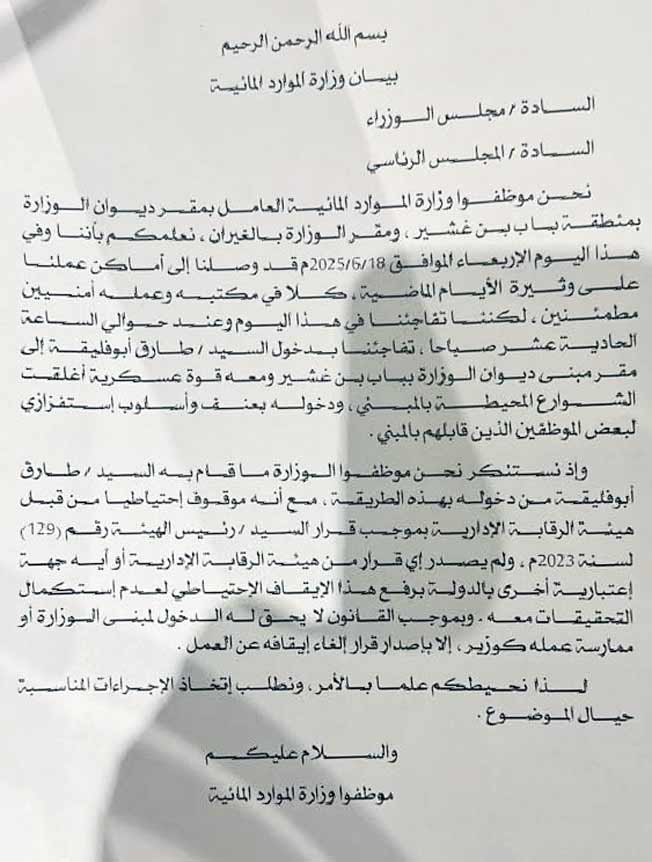 بسم الله الرحمن الرحيم
بيان وزارة الموارد المائية
السادة / مجلس الوزراء
السادة / المجلس الرئاسي
نحن موظفوا وزارة الموارد المائية العامل بمقر ديوان الوزارة
بمنطقة بباب بن غشير ، ومقر الوزارة بالغيران ، نعلمكم بأننا وفي
هذا اليوم الإربعاء الموافق 2025/6/18م قد وصلنا إلى أماكن عملنا
على وثيرة الأيام الماضية ، كلا في مكتبه وعمله أمنيين
مطمئنين ، لكننا تفاجئنا في هذا اليوم وعند حوالي الساعة
الحادية عشر صباحا ، تفاجئنا بدخول السيد / طارق أبوفليقة إلى
مقر مبنى ديوان الوزارة بباب بن غشير ومعه قوة عسكرية أغلقت
الشوارع المحيطة بالمبني ، ودخوله بعنف وأسلوب إستفزازي
لبعض الموظفين الذين قابلهم بالمبني .
وإذ نستنكر نحن موظفوا الوزارة ما قام به السيد / طارق
أبوفليقة من دخوله بهذه الطريقة ، مع أنه موقوف إحتياطيا من قبل
هيئة الرقابة الإدارية بموجب قرار السيد / رئيس الهيئة رقم (129)
لسنة 2023م ، ولم يصدر إي قرار من هيئة الرقابة الإدارية أو أيه جهة
إعتبارية أخرى بالدولة برفع هذا الايقاف الإحتياطي لعدم إستكمال
التحقيقات معه . وبموجب القانون لا يحق له الدخول لمبنى الوزارة أو
ممارسة عمله كوزير ، إلا بإصدار قرار إلغاء إيقافه عن العمل .
لذا نحيطكم علما بالأمر ، ونطلب إتخاذ الإجراءات المناسبة
حيال الموضوع .
والسلام عليكم
موظفوا وزارة الموارد المائية